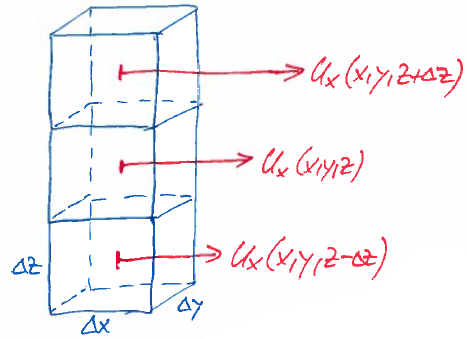 Ux(x,y,z+Δz)
Ux(x,y,z)
Ux(x,y,z-Δz)
Δz
Δy
Δx